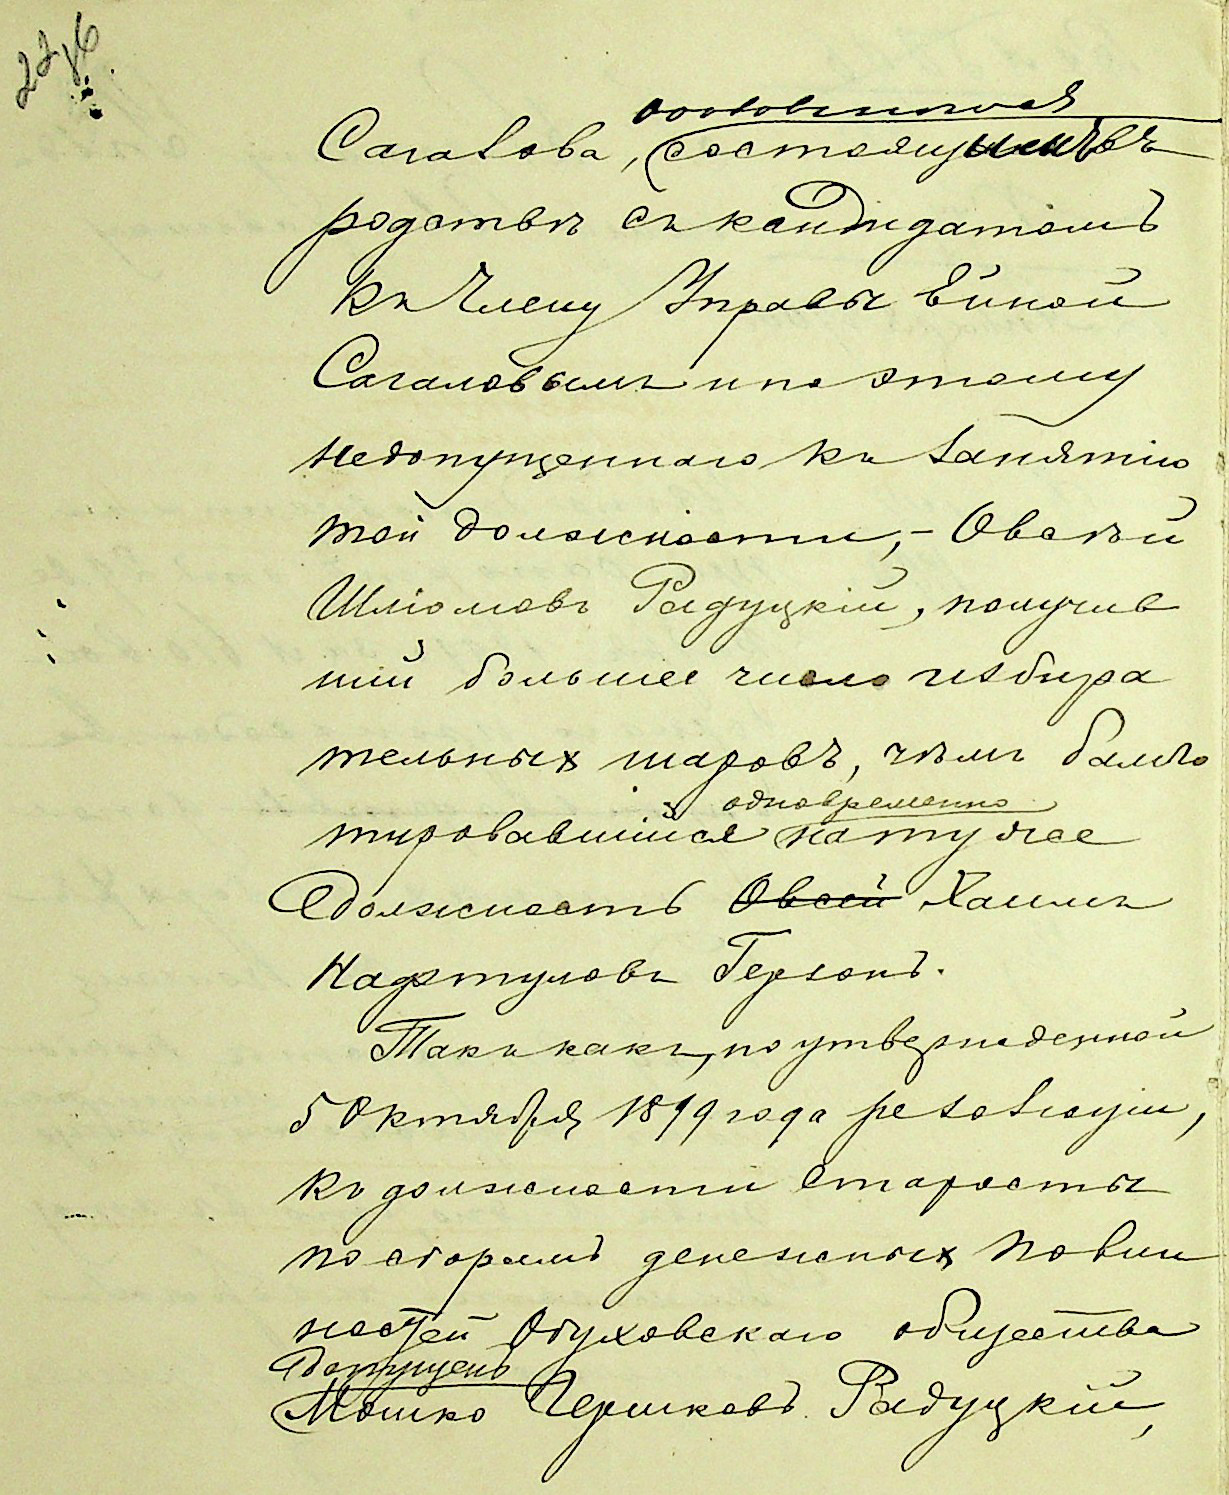 Сагалова, состоящаго въ
родствѣ съ кандидатомъ
къ Члену Управы Ейной
Сагаловымъ и по этому
недопущеннаго къ занятію
той должности, – Овсѣй
Шліомовъ Радуцкій, получив
шій большее число избира
тельныхъ шаровъ, чѣмъ балло
одновременно
тировавшійся на ту же
должность Овсей Хаимъ
Нафтуловъ Герзонъ.
Такъ какъ, по утвержденной
5 Октября 1899 года резолюціи,
къ должности старосты
по сборамъ денежныхъ повин
ностей Обуховскаго общества
допущенъ
Мошко Гершковъ Радуцкій,